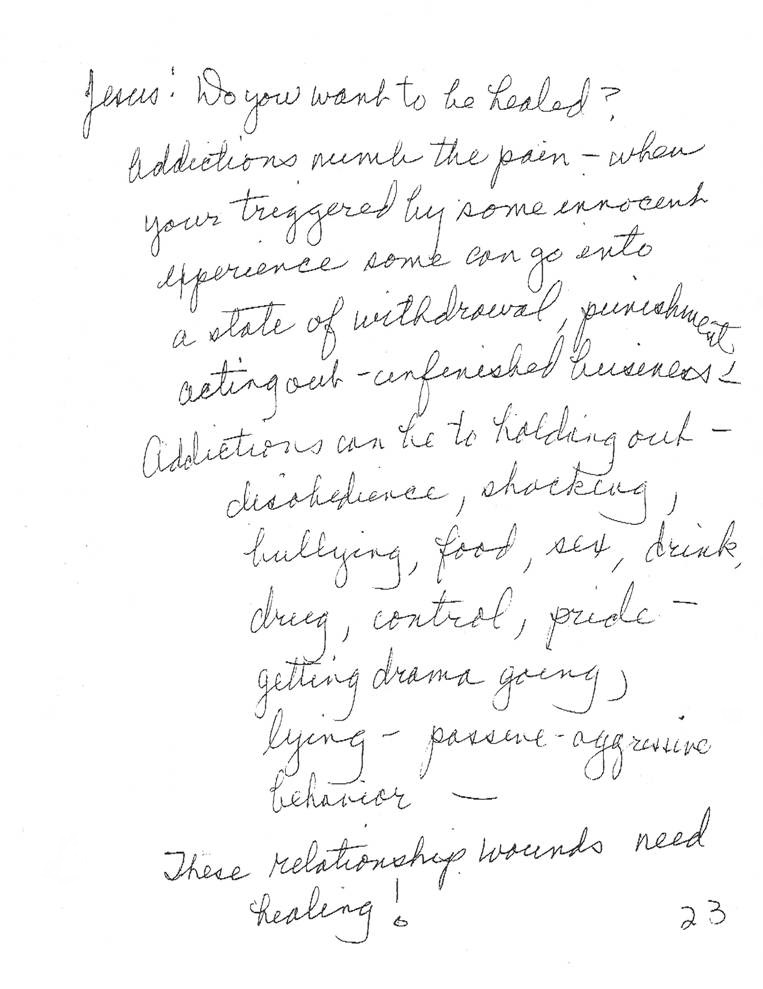 Jesus: Do you want to be healed?
Addictions numb the pain – when
your triggered by some innocent
experience some can go into
a state of withdrawal, punishment
acting out – unfinished business!
Addictions can be to holding out –
disobedience, shocking,
bullying, food, sex, drink,
drug, control, pride –
getting drama going,
lying – passive-aggressive
behavior —
These relationship wounds need
healing!
23